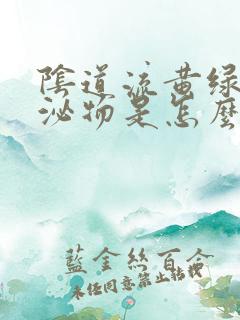 陰道流黄绿
泌物是怎麽
藍金絲百合
未经同意禁止转载